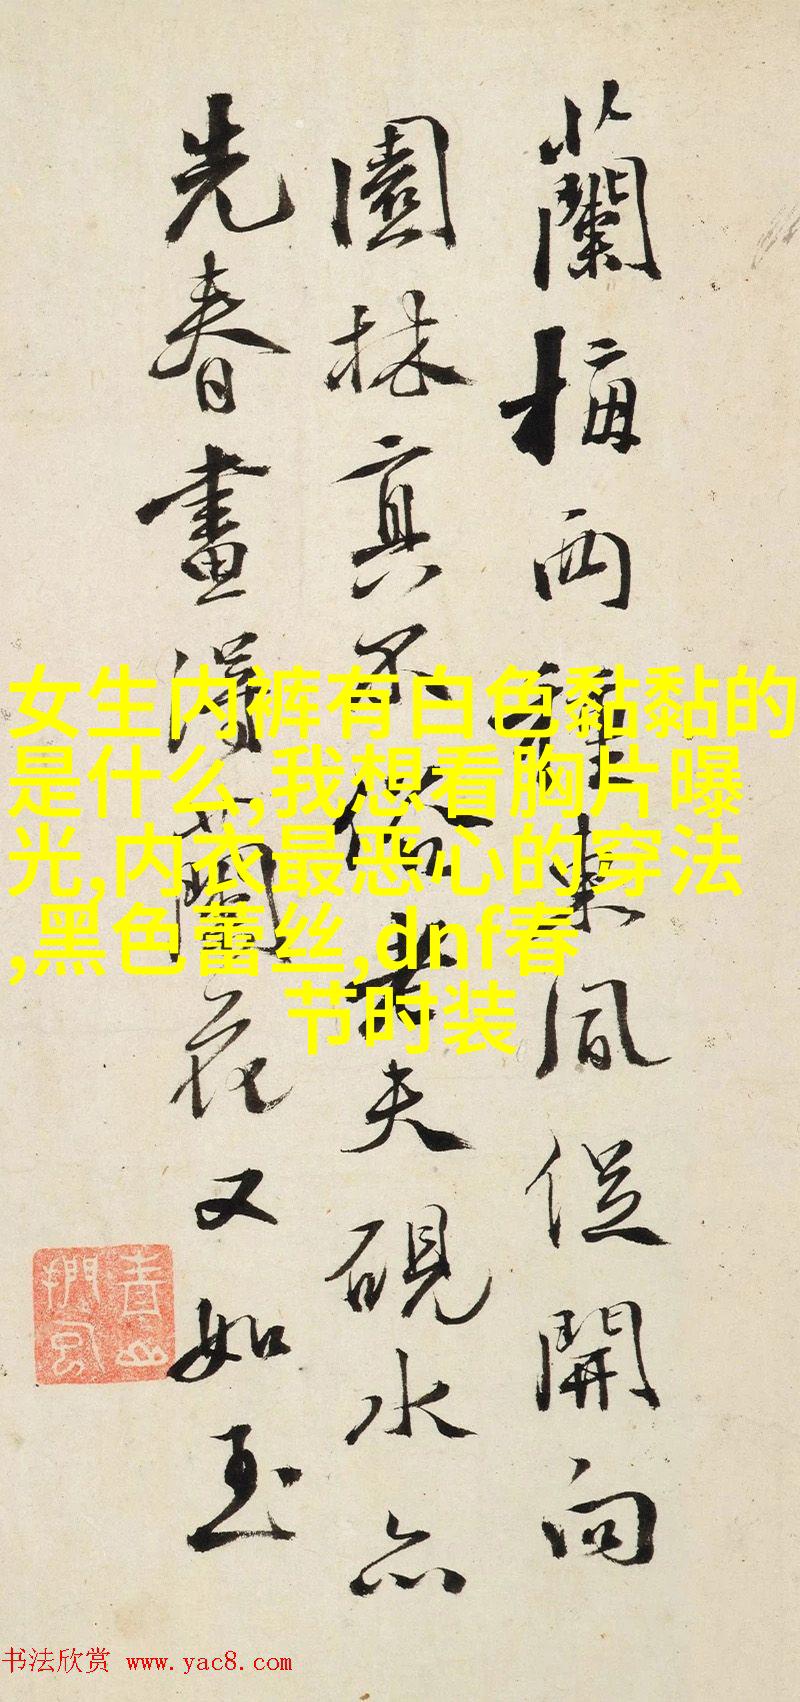 蘭梅兩種東風從開向
園林真不俗老夫硯水亦
先春畫得蘭花又如玉
女生内裤有白色黏黏的
是什么,我想看胸片曝
光,内衣最恶心的穿法
,黑色蕾丝,dnf春
节时装
书法欣赏 www.yac8.com